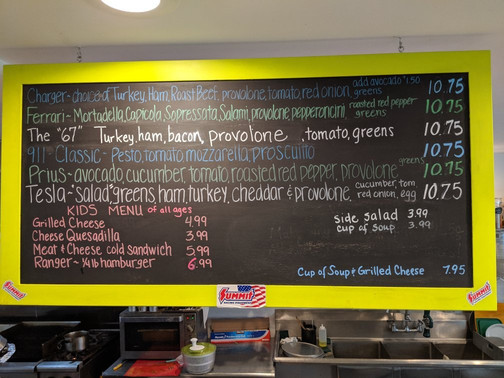 Charger - choice of Turkey, Ham, Roast Beef, provolone, tomato, red onion, greens add avocado $1.50 10.75
Ferrari - Mortadella, Capicola, Sopressata, Salami, provolone, pepperoncini, roasted red pepper greens 10.75
The "67" Turkey, ham, bacon, provolone, tomato, greens 10.75
911 - Classic - Pesto, tomato mozzarella, prosciutto 10.75
Prius - avocado, cucumber, tomato, roasted red pepper, provolone greens 10.75
Tesla - "salad", greens, ham, turkey, cheddar & provolone, cucumber, tom, red onion, egg 10.75
KIDS MENU of all ages
Grilled Cheese 4.99
Cheese Quesadilla 3.99
Meat & Cheese cold sandwich 5.99
Ranger - 1/4 lb hamburger 6.99
side salad 3.99
cup of soup 3.99
Cup of Soup & Grilled Cheese 7.95
Summit
Summit
Summit